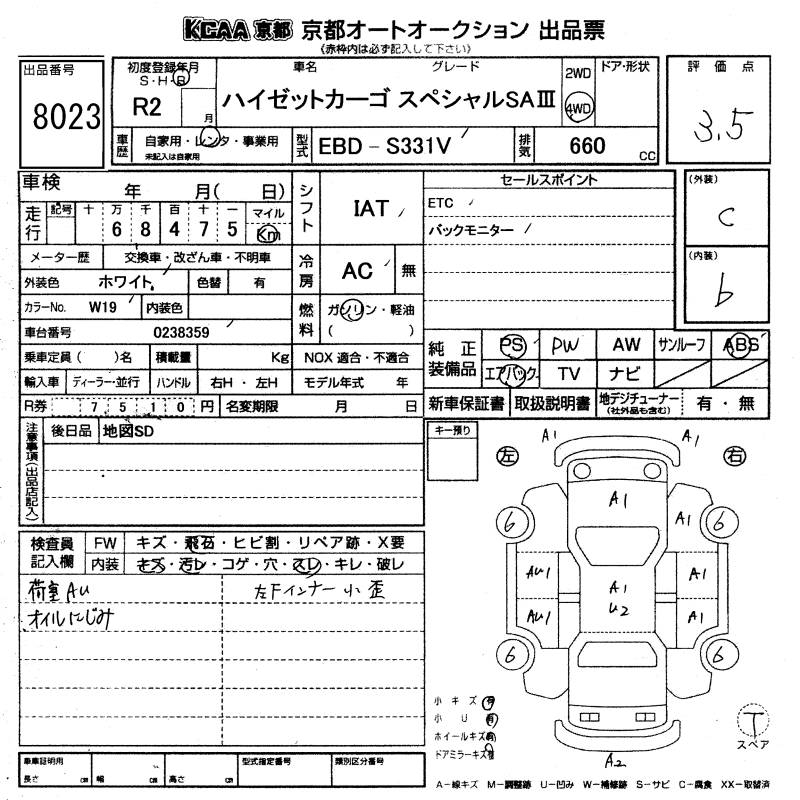 KCAA 京都 京都オートオークション 出品票
《赤枠内は必ず記入して下さい》
出品番号
8023
初度登録年月
S・H・R
R2
月
車名 グレード
ハイゼットカーゴ スペシャルSAⅢ
2WD
4WD
ドア・形状
評価点
3.5
車歴
自家用・レンタ・事業用
未記入は自家用
型式
EBD - S331V
排気
660 CC
車検 年 月( 日)
走行
記号 十 万 千 百 十 一 マイル
6 8 4 7 5 Km
メーター歴 交換車・改ざん車・不明車
外装色 ホワイト 色替 有
カラーNo. W19 内装色
車台番号 0238359
乗車定員( )名 積載量 Kg
輸入車 ディーラー・並行 ハンドル 右H・左H
R券 7510円 名変期限 月 日
シフト IAT
冷房 AC 無
燃料 ガソリン・軽油
( )
NOX 適合・不適合
モデル年式 年
セールスポイント
ETC
バックモニター
(外装)
C
(内装)
b
純正装備品
PS PW AW サンルーフ ABS
エアバック TV ナビ
新車保証書 取扱説明書 地デジチューナー(社外品も含む) 有・無
注意事項(出品店記入)
後日品 地図SD
検査員記入欄
FW キズ・飛石・ヒビ割・リペア跡・X要
内装 キズ・汚レ・コゲ・穴・スレ・キレ・破レ
荷室AU 左Fインナー小歪
オイルにじみ
キー預り
左 右
A1 A1
A1
A1
6 6
AU1 A1 A1
U2
AU1 A1
6 6
A2
小キズ 有
小U 有
ホイールキズ有
ドアミラーキズ有
T
スペア
車庫証明用
長さ cm 幅 cm 高さ cm
型式指定番号 類別区分番号
A－線キズ M－調整跡 U－凹み W－補修跡 S－サビ C－腐食 XX－取替済